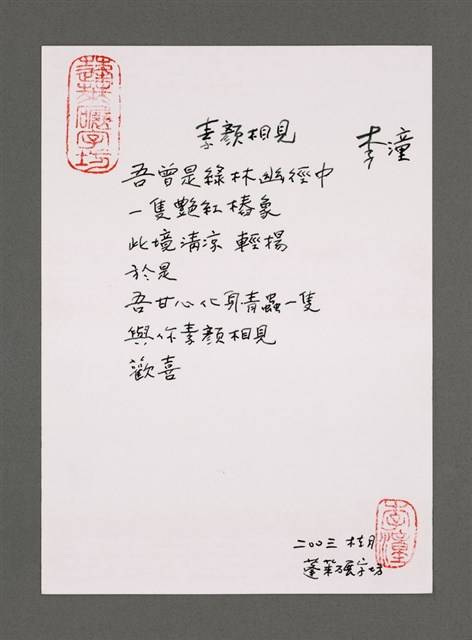 素顏相見
李潼
吾曾是綠林幽徑中
一隻艷紅樁象
此境清涼 輕揚
於是
吾甘心化身青蟲一隻
與你素顏相見
歡喜
二〇〇三 桂月
蓬萊碾字坊
蓬萊碾字坊
李潼